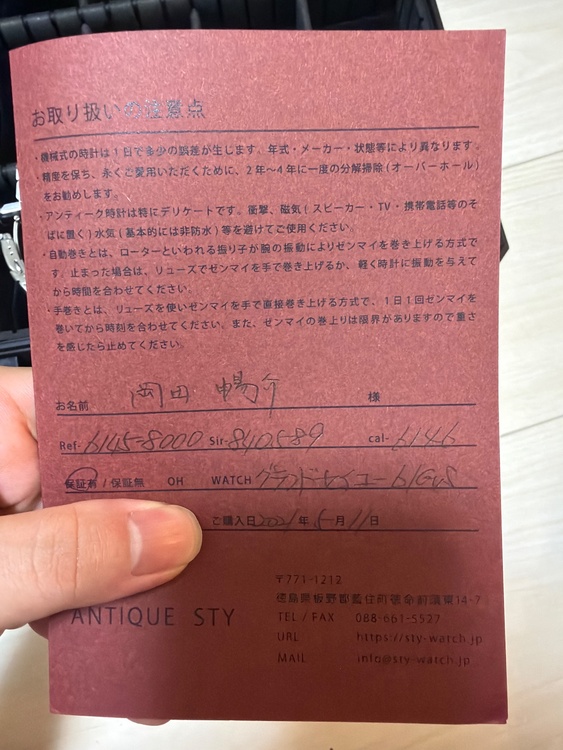 お取り扱いの注意点
・機械式の時計は1日で多少の誤差が生じます。年式・メーカー・状態等により異なります。
・精度を保ち、永くご愛用いただくために、2年〜4年に一度の分解掃除(オーバーホール)
をお勧めします。
・アンティーク時計は特にデリケートです。衝撃、磁気(スピーカー・TV・携帯電話等のそ
ばに置く)水気(基本的には非防水)等を避けてご使用ください。
・自動巻きとは、ローターといわれる振り子が腕の振動によりゼンマイを巻き上げる方式で
す。止まった場合は、リューズでゼンマイを手で巻き上げるか、軽く時計に振動を与えて
から時間を合わせてください。
・手巻きとは、リューズを使いゼンマイを手で直接巻き上げる方式で、1日1回ゼンマイを
巻いてから時刻を合わせてください。また、ゼンマイの巻上りは限界がありますので重さ
を感じたら止めてください。
お名前 岡田 暢介 様
Ref- 6145-8000 Sir- 840589 cal- 6146
保証有 / 保証無 OH WATCH グランドセイコー 61GS
ご購入日 2021年 5月 11日
〒771-1212
徳島県板野郡藍住町徳命前須東14-7
ANTIQUE STY
TEL / FAX 088-661-5527
URL https://sty-watch.jp
MAIL info@sty-watch.jp